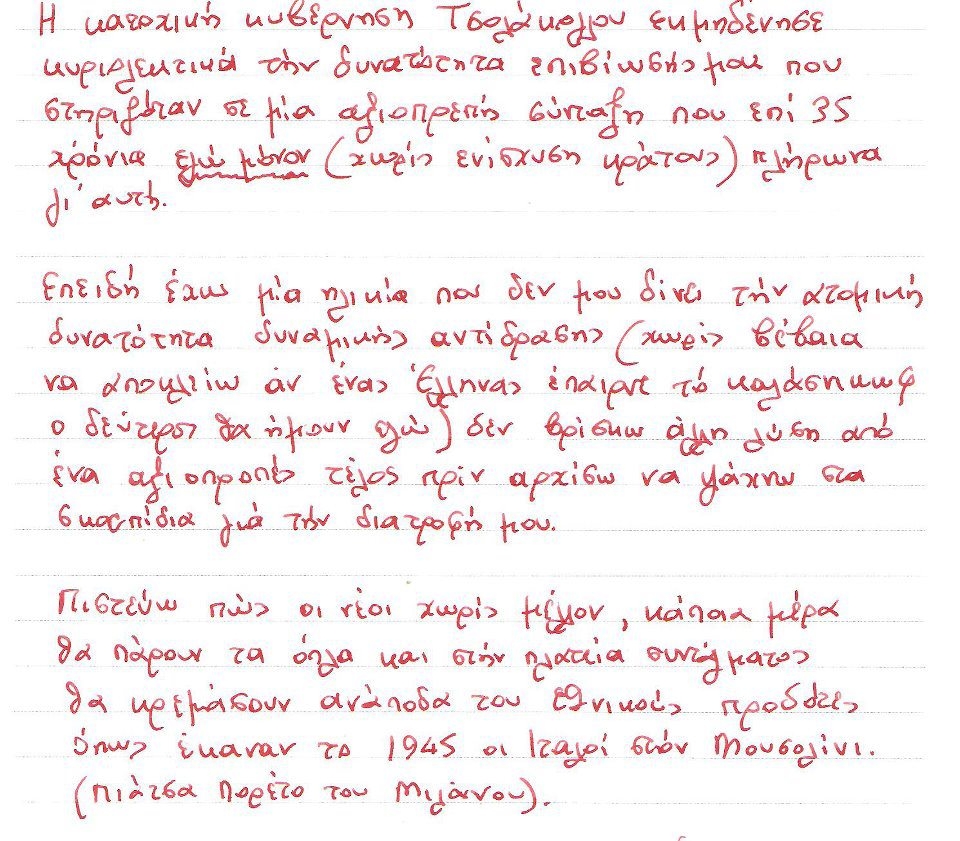 Η κατοχική κυβέρνηση Τσολάκογλου εκμηδένησε
κυριολεκτικά την δυνατότητα επιβίωσής μου που
στηριζόταν σε μία αξιοπρεπή σύνταξη που επί 35
χρόνια εγώ μόνον (χωρίς ενίσχυση κράτους) πλήρωνα
γι' αυτή.
Επειδή έχω μία ηλικία που δεν μου δίνει την ατομική
δυνατότητα δυναμικής αντίδρασης (χωρίς βέβαια
να αποκλείω αν ένας Έλληνας έπαιρνε το καλάσηκωφ
ο δεύτερος θα ήμουν εγώ) δεν βρίσκω άλλη λύση από
ένα αξιοπρεπές τέλος πριν αρχίσω να ψάχνω στα
σκουπίδια γιά την διατροφή μου.
Πιστεύω πώς οι νέοι χωρίς μέλλον, κάποια μέρα
θα πάρουν τα όπλα και στην πλατεία συντάγματος
θα κρεμάσουν ανάποδα του εθνικούς προδότες
όπως έκαναν το 1945 οι Ιταλοί στον Μουσολίνι.
(πιάτσα Πορέτο του Μιλάνου).